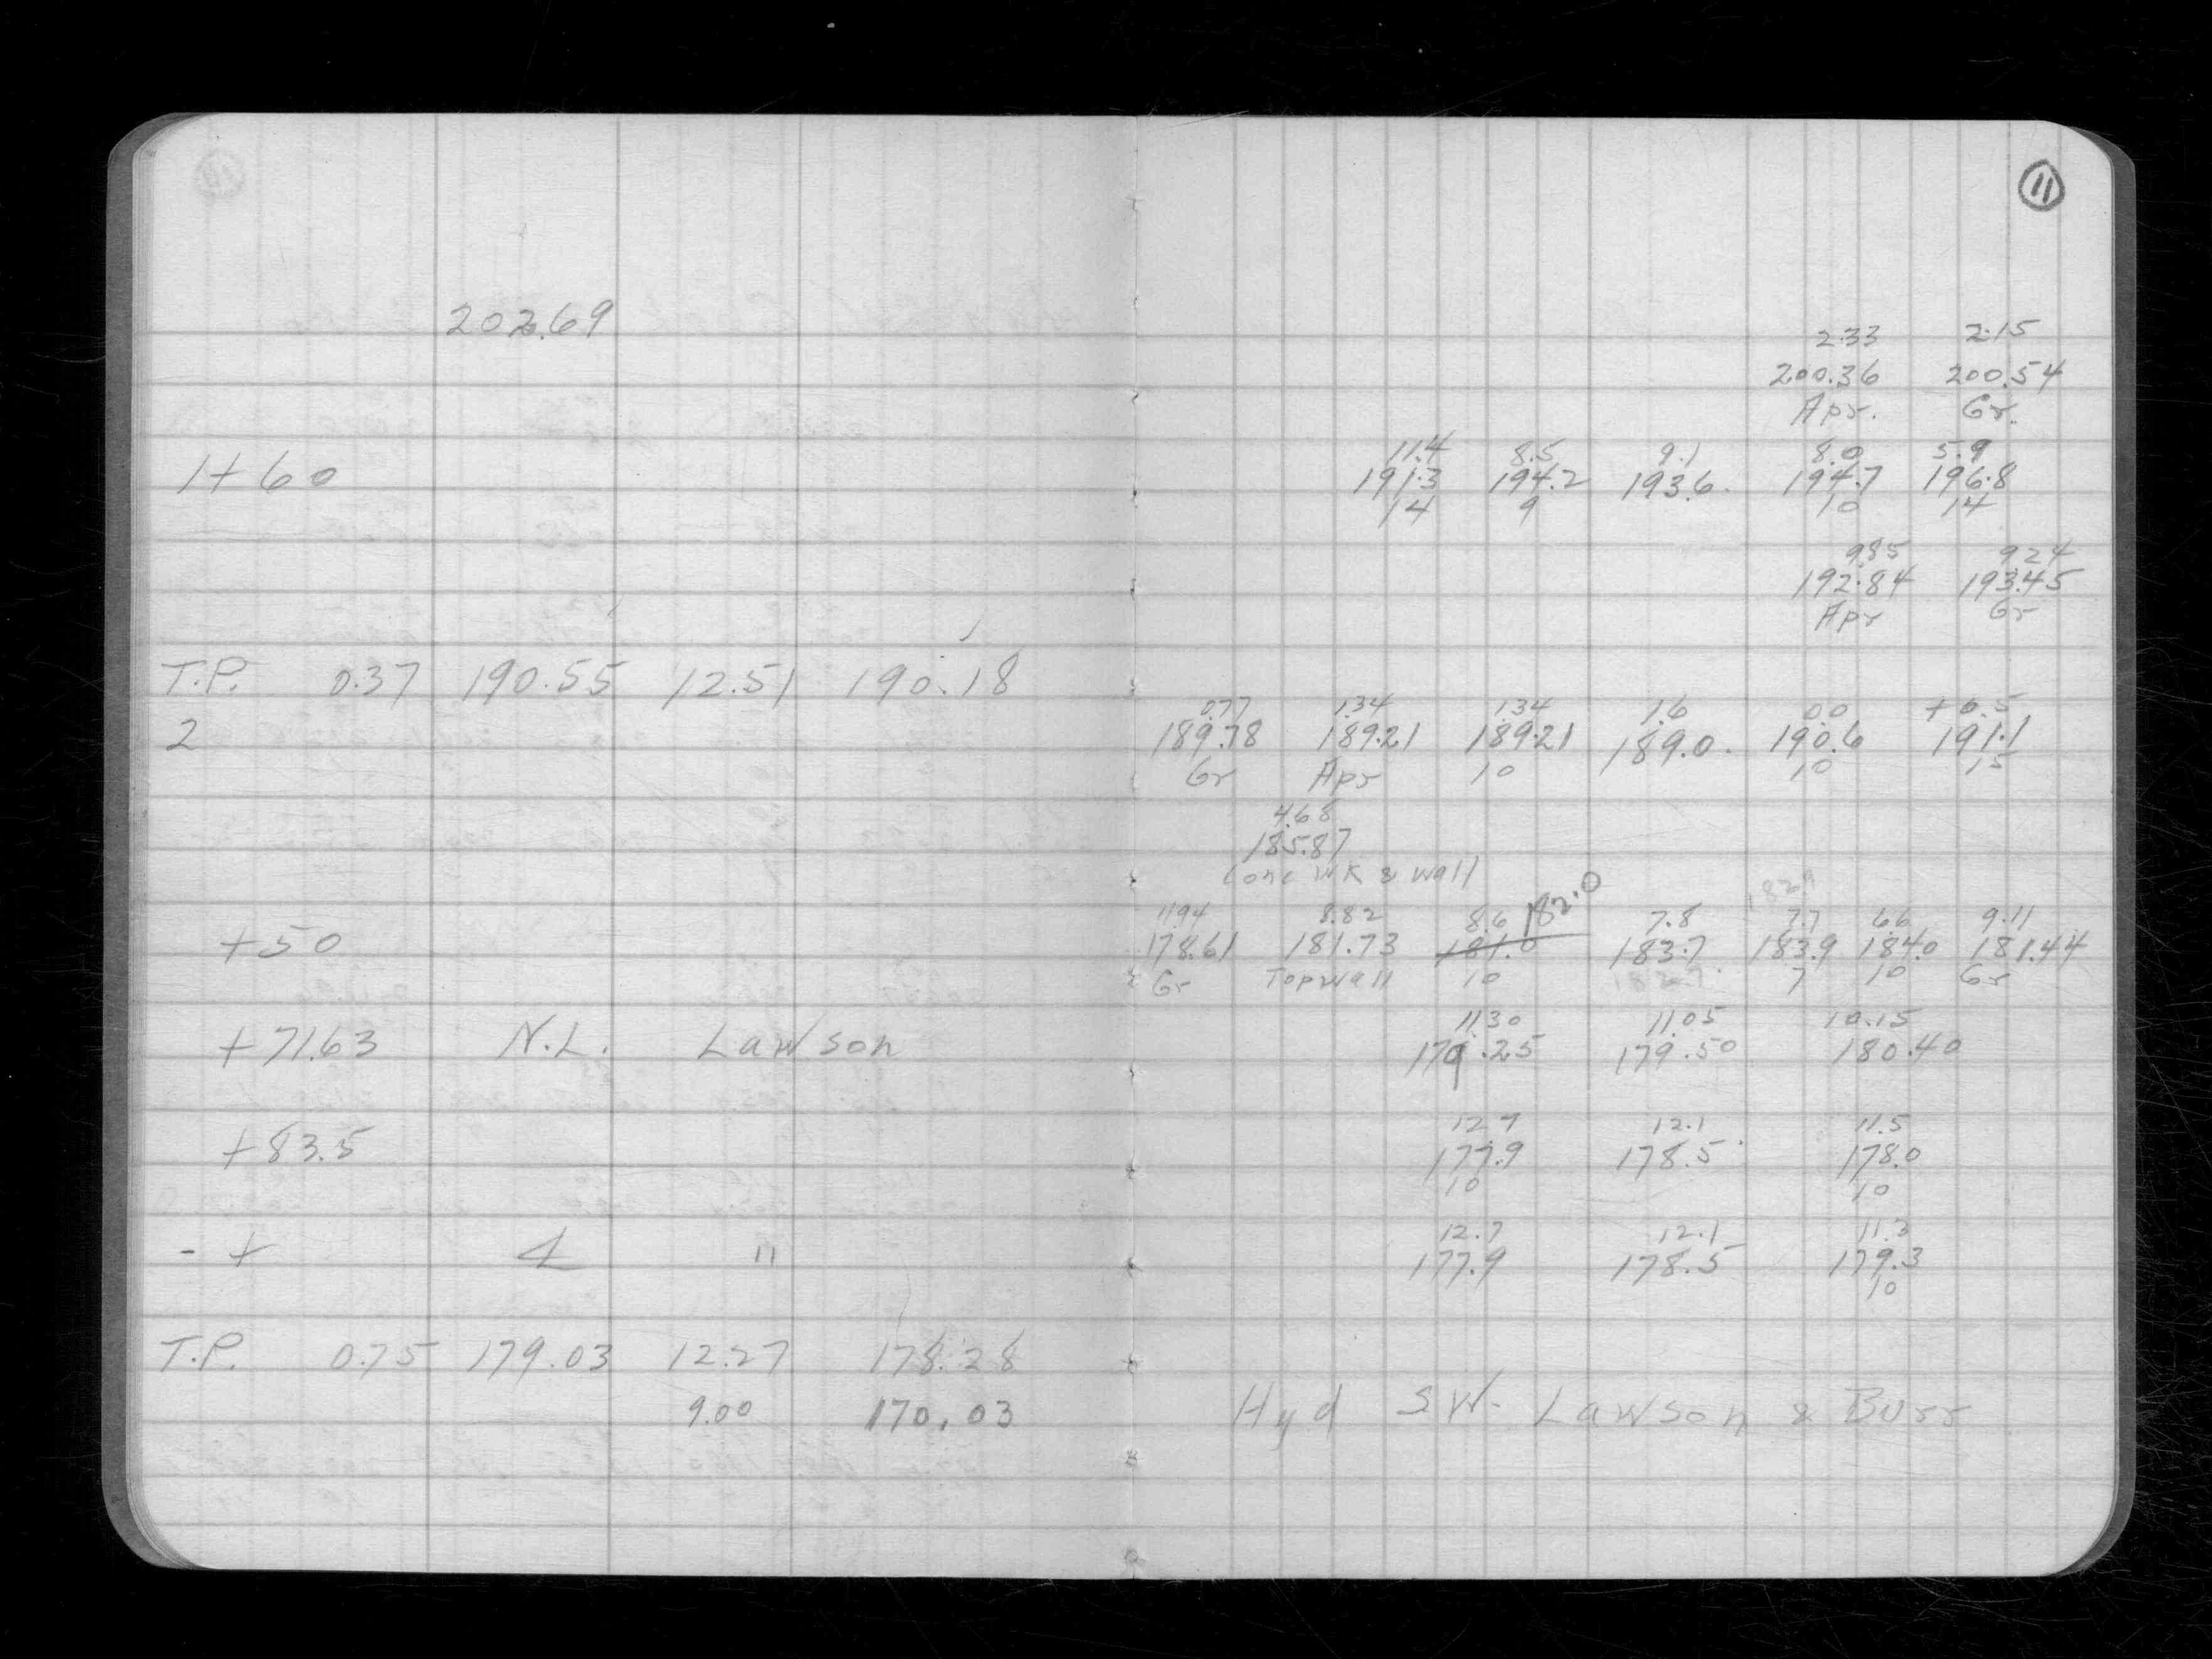 11
202.69
2.33 2.15
200.36 200.54
Apr. Gr.
11.4 8.5 9.1 8.0 5.9
1+60 191.3 194.2 193.6 194.7 196.8
14 9 10 14
9.85 9.24
192.84 193.45
Apr Gr
T.P. 0.37 190.55 12.51 190.18
0.77 1.34 1.34 1.6 0.0 +0.5
2 189.78 189.21 189.21 189.0 190.6 191.1
Gr Apr 10 10 15
4.68
185.87
Conc WK & Wall
182.0
11.94 8.82 8.6 7.8 7.7 6.6 9.11
+50 178.61 181.73 181.0 183.7 183.9 184.0 181.44
Gr Top wall 10 7 10 Gr
11.30 11.05 10.15
+71.63 N.L. Lawson 179.25 179.50 180.40
12.7 12.1 11.5
+83.5 177.9 178.5 178.0
10 10
12.7 12.1 11.3
- + " 177.9 178.5 179.3
10
T.P. 0.75 179.03 12.27 178.28
9.00 170.03 Hyd S.W. Lawson & Burr